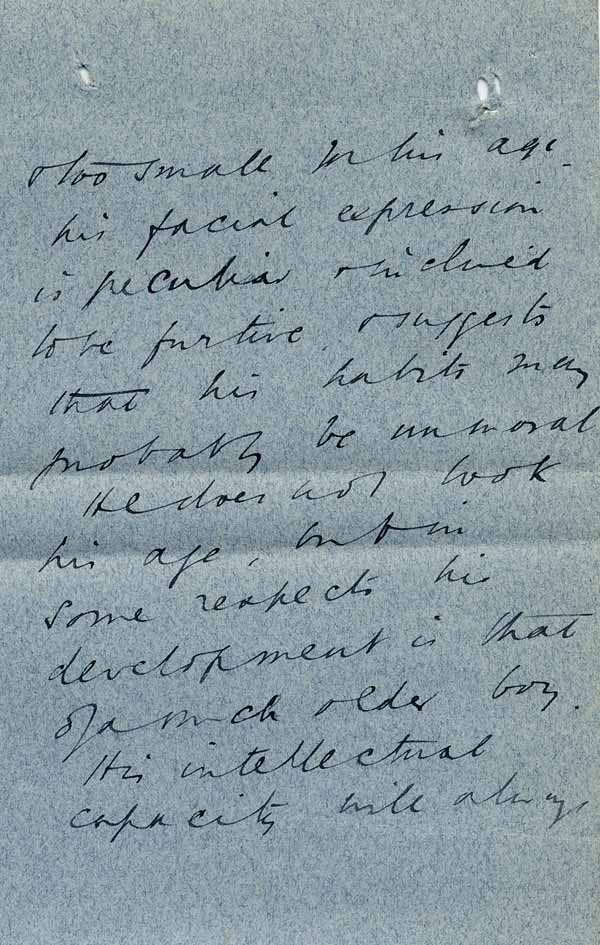 & too small for his age.
his facial expression
is peculiar & inclined
to be furtive, & suggests
that his habits may
probably be unmoral
He does not look
his age, but in
some respects his
development is that
of a much older boy.
His intellectual
capacity will always